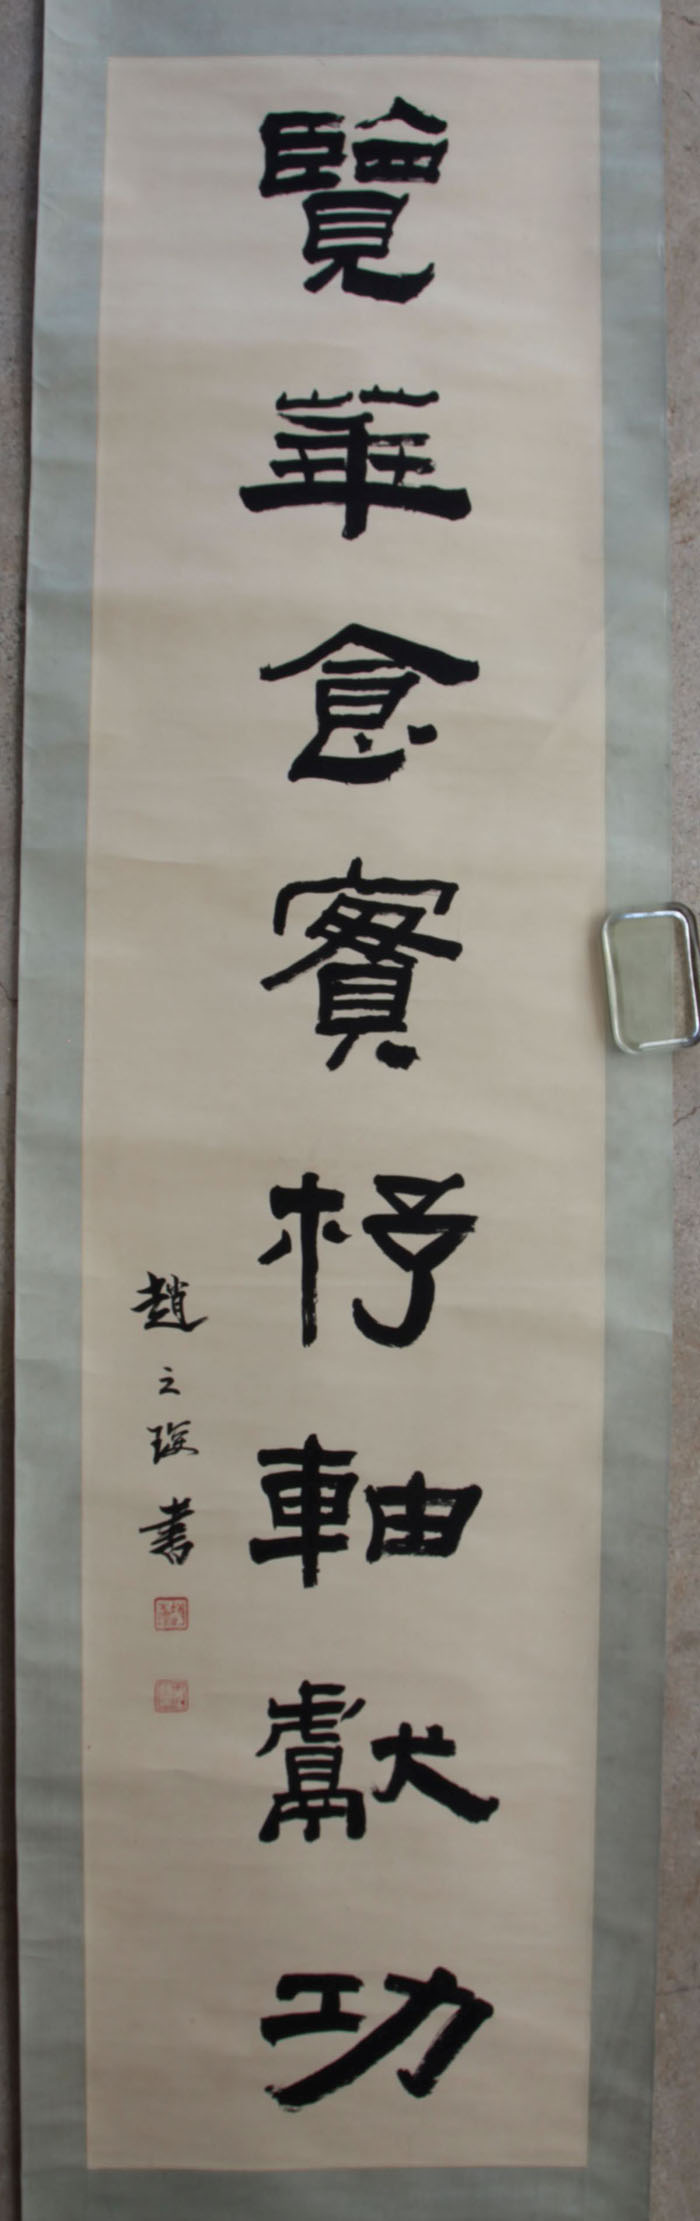 覽華食實杼軸獻功
趙之琛書